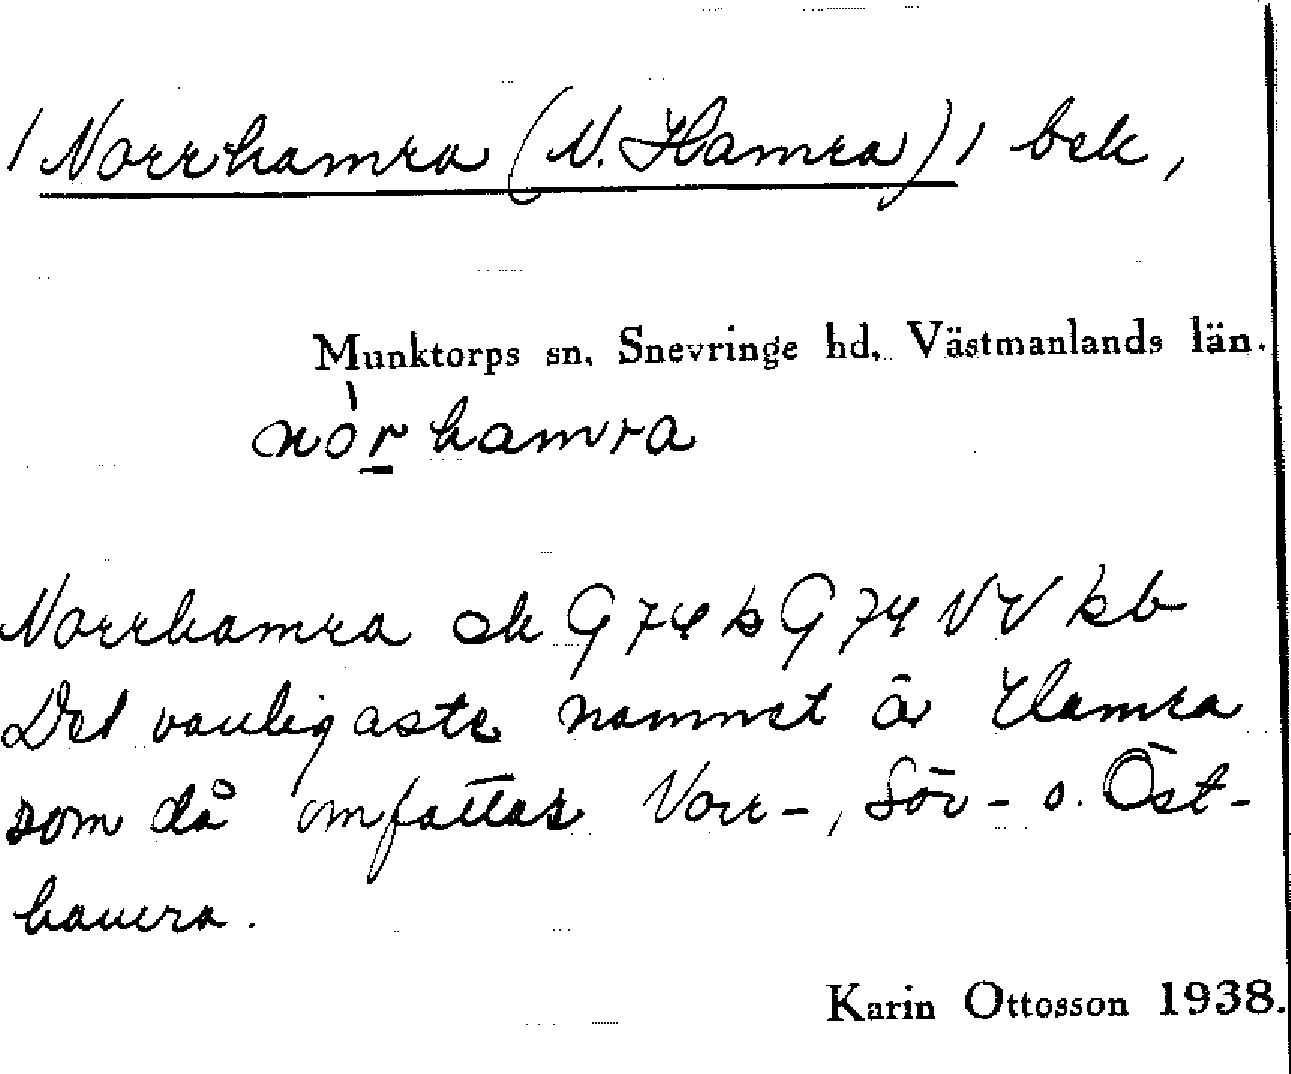 / Norrhamra (N. Hamra) / bek,
Munktorps sn. Snevringe hd. Västmanlands län.
nòr hamra
Norrhamra ek G 74 k G 74 VV kb
Det vanligaste namnet är Hamra
som då omfattar Norr-, Sör- o. Öst-
hamra.
Karin Ottosson 1938.